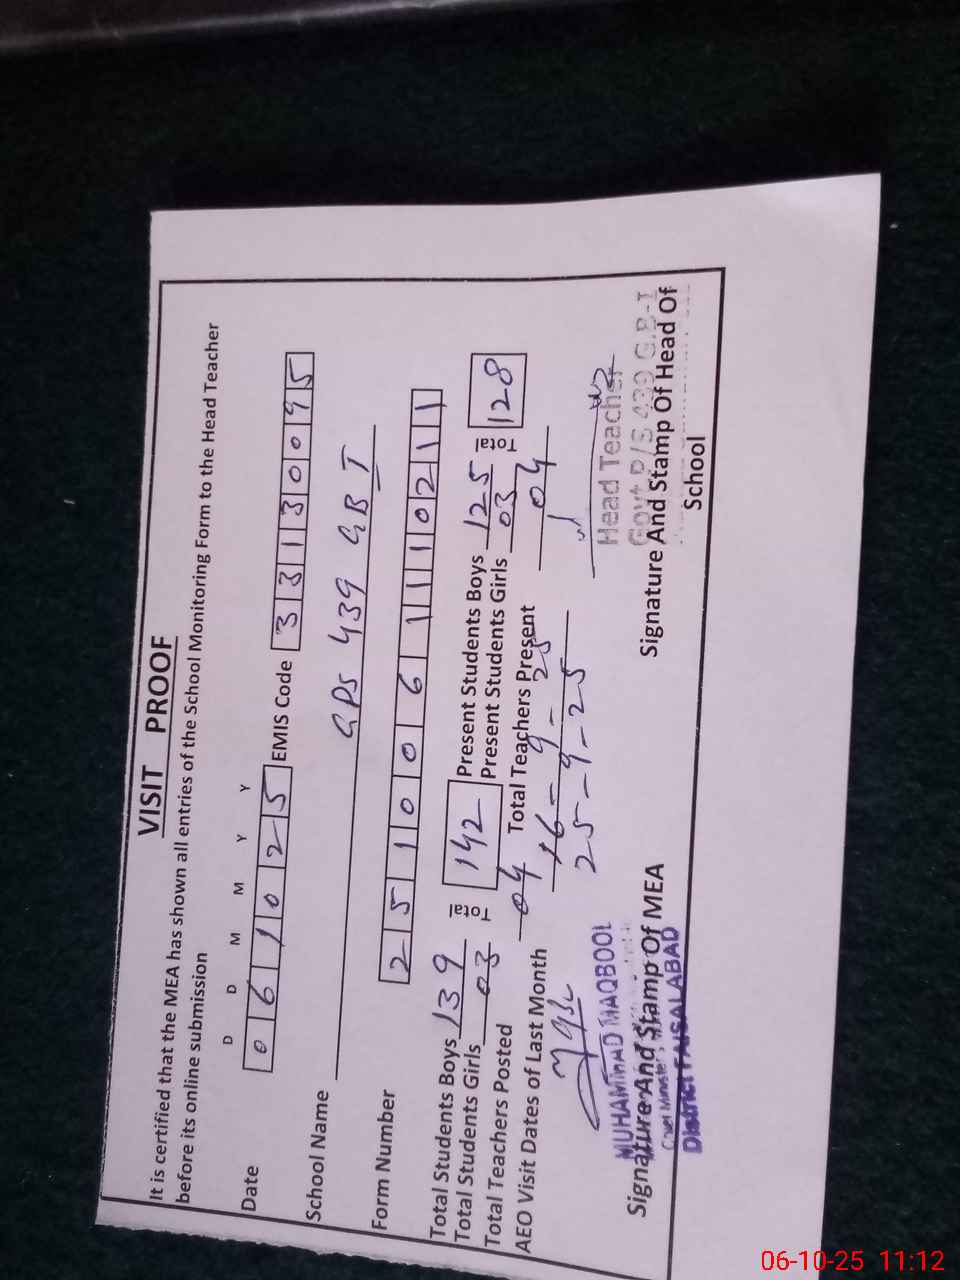 VISIT PROOF
It is certified that the MEA has shown all entries of the School Monitoring Form to the Head Teacher
before its online submission
D D M M Y Y
Date 0 6 1 0 2 5 EMIS Code 3 3 1 3 0 0 9 5
School Name GPS 439 GB I
Form Number 2 5 1 0 0 6 1 1 1 0 2 1 1
Total Students Boys 139 Total 142 Present Students Boys 125 Total 128
Total Students Girls 03 Present Students Girls 03
Total Teachers Posted 04 Total Teachers Present 04
AEO Visit Dates of Last Month 16-9-25
25-9-25
MUHAMMAD MAQBOOL
Signature And Stamp Of MEA
Chief Minister's
District FAISALABAD
Head Teacher
Govt P/S 439 G.B-I
Signature And Stamp Of Head Of
School
06-10-25 11:12